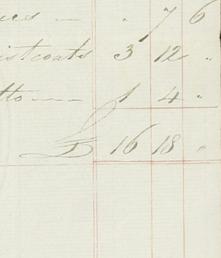 " 7 6
istcoats 3 12 "
tto — 1 4 "
£ 16 18 "